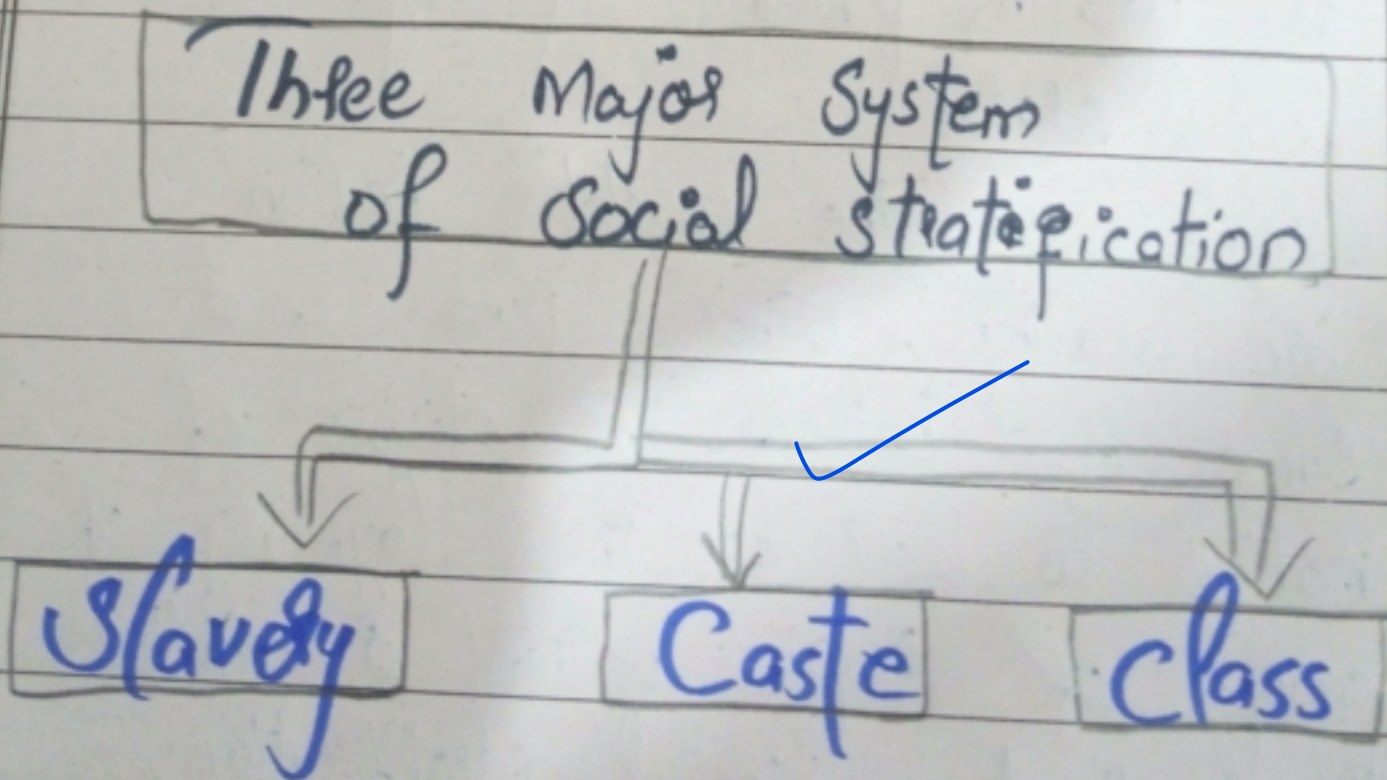 Three Major System
of Social Stratification
Slavery
Caste
Class